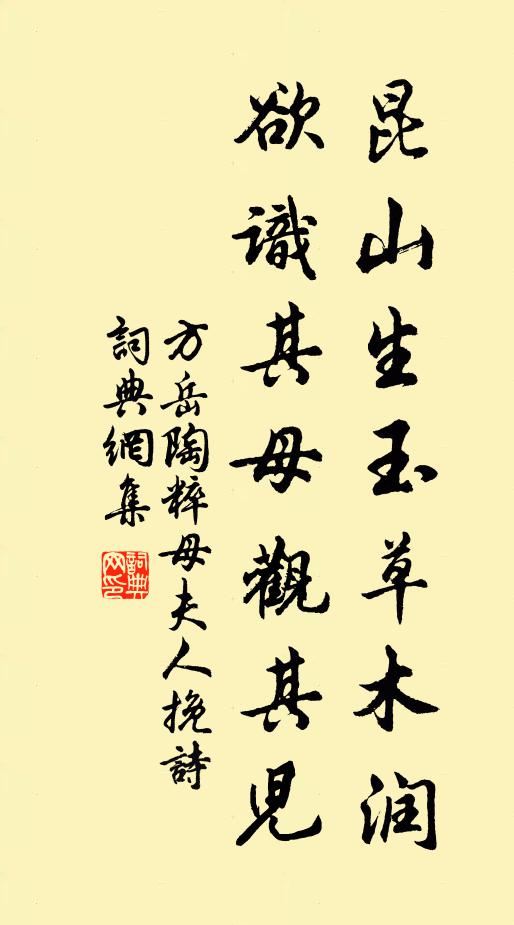 昆山生玉草木润
欲識其母觀其児
方岳陶粹母夫人挽詩
詞典網集
詞典网印